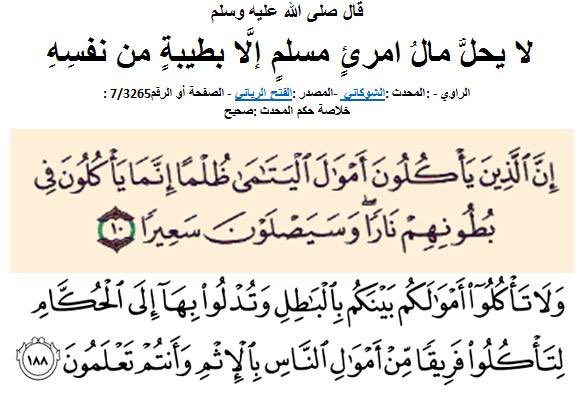 قال صلى الله عليه وسلم
لا يحلَّ مالُ امرئٍ مسلمٍ إلَّا بطيبةٍ من نفسِهِ
الراوي - : المحدث :الشوكاني -المصدر :الفتح الرباني - الصفحة أو الرقم7/3265 :
خلاصة حكم المحدث :صحيح
إِنَّ ٱلَّذِينَ يَأۡكُلُونَ أَمۡوَٰلَ ٱلۡيَتَٰمَىٰ ظُلۡمًا إِنَّمَا يَأۡكُلُونَ فِي
بُطُونِهِمۡ نَارٗاۖ وَسَيَصۡلَوۡنَ سَعِيرٗا ١٠
وَلَا تَأۡكُلُوٓاْ أَمۡوَٰلَكُم بَيۡنَكُم بِٱلۡبَٰطِلِ وَتُدۡلُواْ بِهَآ إِلَى ٱلۡحُكَّامِ
لِتَأۡكُلُواْ فَرِيقٗا مِّنۡ أَمۡوَٰلِ ٱلنَّاسِ بِٱلۡإِثۡمِ وَأَنتُمۡ تَعۡلَمُونَ ١٨٨